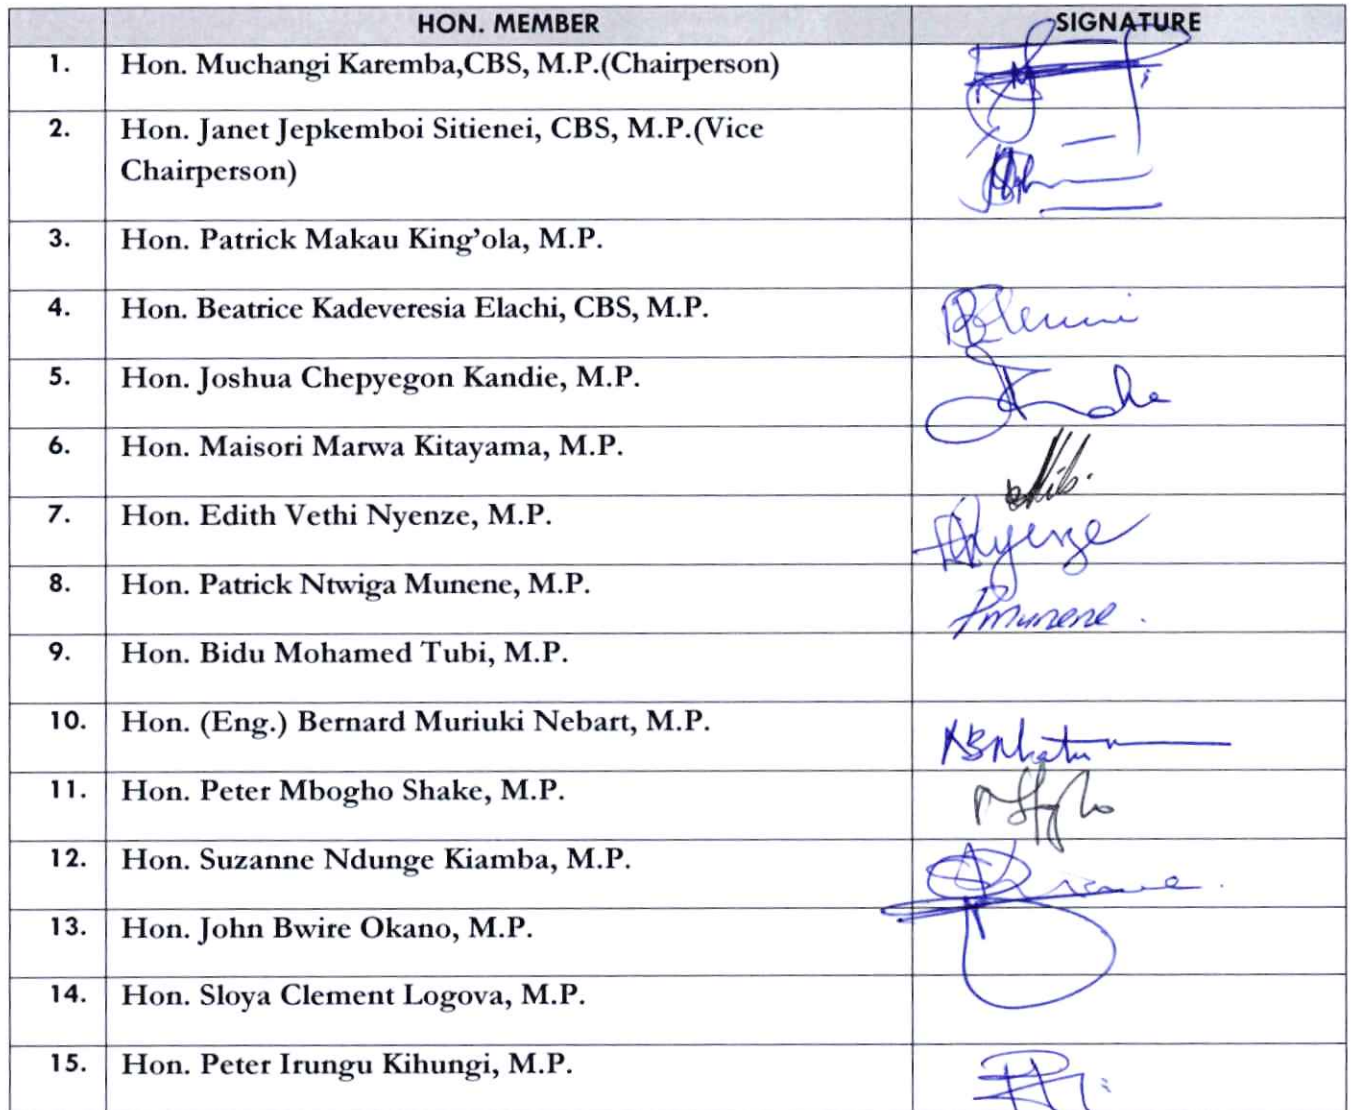 HON. MEMBER SIGNATURE
1. Hon. Muchangi Karemba,CBS, M.P.(Chairperson)
2. Hon. Janet Jepkemboi Sitienei, CBS, M.P.(Vice
Chairperson)
3. Hon. Patrick Makau King’ola, M.P.
4. Hon. Beatrice Kadeveresia Elachi, CBS, M.P.
5. Hon. Joshua Chepyegon Kandie, M.P.
6. Hon. Maisori Marwa Kitayama, M.P.
7. Hon. Edith Vethi Nyenze, M.P. Nyenze
8. Hon. Patrick Ntwiga Munene, M.P. Pmunene.
9. Hon. Bidu Mohamed Tubi, M.P.
10. Hon. (Eng.) Bernard Muriuki Nebart, M.P.
11. Hon. Peter Mbogho Shake, M.P.
12. Hon. Suzanne Ndunge Kiamba, M.P.
13. Hon. John Bwire Okano, M.P.
14. Hon. Sloya Clement Logova, M.P.
15. Hon. Peter Irungu Kihungi, M.P.